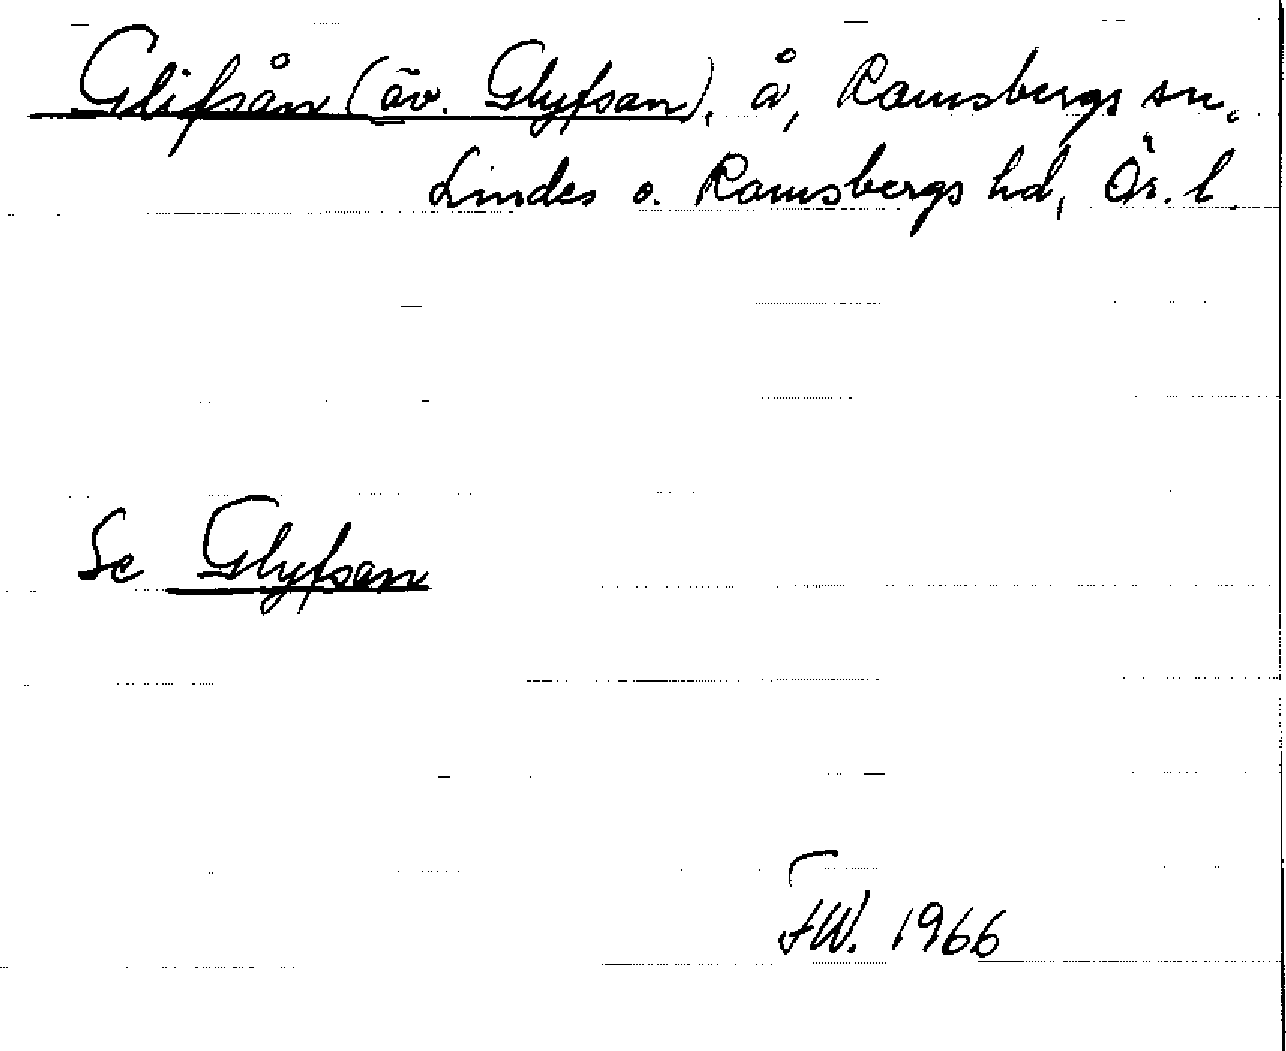 Glifsån (äv. Glyfsan), å, Ramsbergs sn.
Lindes o. Ramsbergs hd, Ör. l.
Se Glyfsan
FW. 1966